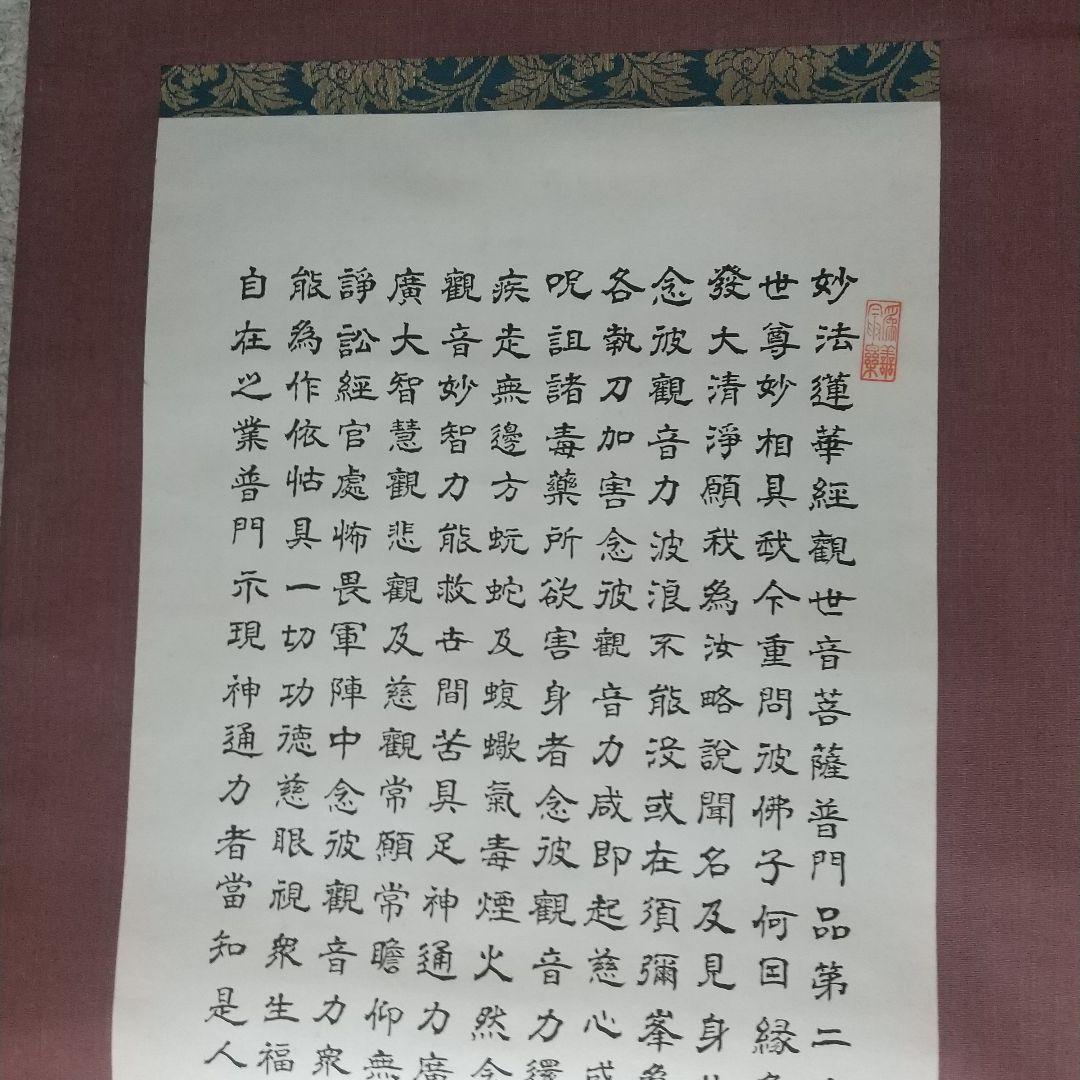 妙法蓮華經觀世音菩薩普門品第二
世尊妙相具我今重問彼佛子何因緣
發大清淨願我為汝略說聞名及見身
念彼觀音力波浪不能沒或在須彌峯
各執刀加害念彼觀音力咸即起慈心
呪詛諸毒藥所欲害身者念彼觀音力還
疾走無邊方蚖蛇及蝮蠍氣毒煙火然念
觀音妙智力能救世間苦具足神通力廣
廣大智慧觀悲觀及慈觀常願常瞻仰無
諍訟經官處怖畏軍陣中念彼觀音力眾
能為作依怙具一切功德慈眼視眾生福
自在之業普門示現神通力者當知是人